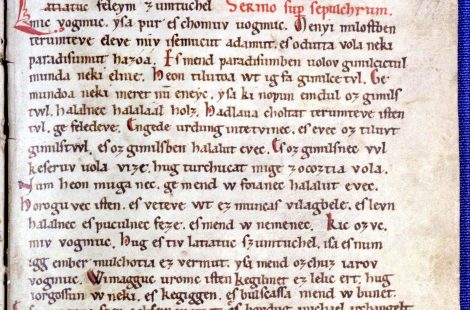 Latiatuc feleym zumtuchel Sermo sup sepulchrum.
mic vogmuc. ysa pur es chomuv uogmuc. Menyi milostben
terumteve eleve miv isemucut adamut. es odutta vola neki
paradisumut hazoa. Es mend paradisumben uolov gimilcictul
munda neki elnie. Heon tilutoa wt ig fa gimilce tvl. Ge
mundoa neki meret nū eneyc. ysa ki nopun emdul oz gimils
twl. halalnec halalaal holz. Hadlaua choltat terumteve isten
tvl. ge feledeve. Engede urdung intetvinec. es evec oz tiluvt
gimilstwl. es oz gimilsben halalut evec. Es oz gimilsnec vvl
keseruv uola vize. hug turchucat mige zocoztia vola.
Num heon muga nec. ge mend w foianec halalut evec.
Horogu vec isten. es veteve wt ez muncas vilagbele. es levn
halalnec es puculnec feze. es mend w nemenec. Kic ozvc.
miv vogmuc. Hug es tiv latiatuv szumtuchel. isa es num
igg ember mulchotia ez vermut. ysa mend ozchuz iarov
vogmuc. Wimagguc uromv isten kegilmet ez lelic ert. hug
iorgossun w neki. es kegiggen. es bulsassa mend w bunet.